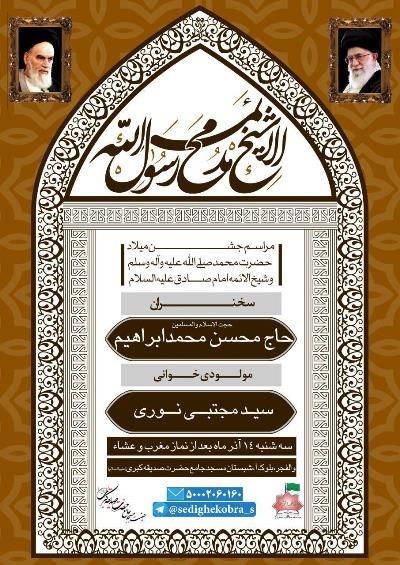 محمد رسول الله
مراسم جشن میلاد
حضرت محمد صلی الله علیه وآله وسلم
وشیخ الائمه امام صادق علیه السلام
سخنران
حجت الاسلام والمسلمین
حاج محسن محمدابراهیم
مولودی خوانی
سید مجتبی نوری
سه شنبه ۱۴ آذر ماه بعد از نماز مغرب و عشاء
والفجر، بلوک آ، شبستان مسجد جامع حضرت صدیقه کبری
۵۰۰۰۲۰۶۰۱۶۰
@sedighekobra_s